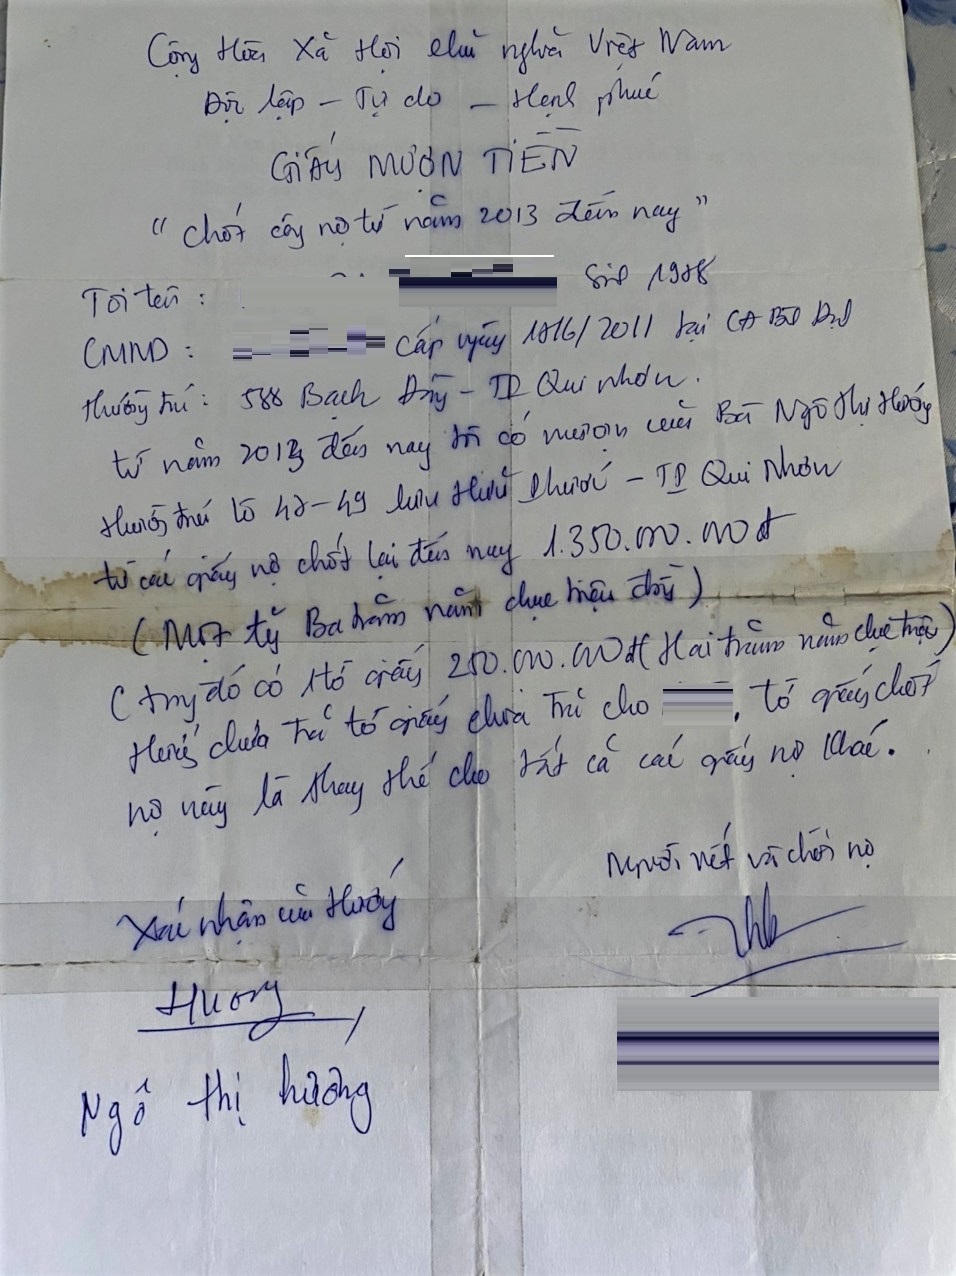 Cộng Hòa Xã Hội chủ nghĩa Việt Nam
Độc lập - Tự do - Hạnh phúc
GIẤY MƯỢN TIỀN
"Chốt công nợ từ năm 2013 đến nay"
Tôi tên : Sinh 1988
CMND : Cấp ngày 18/6/2011 tại CA Bình Định
thường trú : 588 Bạch Đằng - TP Qui Nhơn.
từ năm 2013 đến nay tôi có mượn của Bà Ngô Thị Hường
thường trú lô 48-49 Lưu Hữu Phước - TP Qui Nhơn
từ các giấy nợ chốt lại đến nay 1.350.000.000đ
(Một tỷ Ba trăm năm chục triệu đồng)
(trong đó có 1 tờ giấy 250.000.000đ (Hai trăm năm chục triệu)
Hường chưa trả tờ giấy chưa trả cho , tờ giấy chốt
nợ này là thay thế cho tất cả các giấy nợ khác.
Người viết và chốt nợ
Xác nhận của Hường
Hương
Ngô thị hường